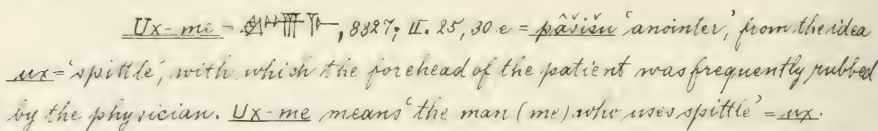 Ux-me = , 8327; II. 25, 30 e = pâšišu 'anointer', from the idea
ux = 'spittle', with which the forehead of the patient was frequently rubbed
by the physician. Ux-me means 'the man (me) who uses spittle' = ux.